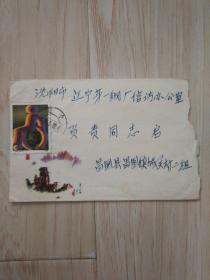 沈阳市 辽宁第一钢厂信访办公室
贾贵同志启
昌图县昌图镇城关村二组